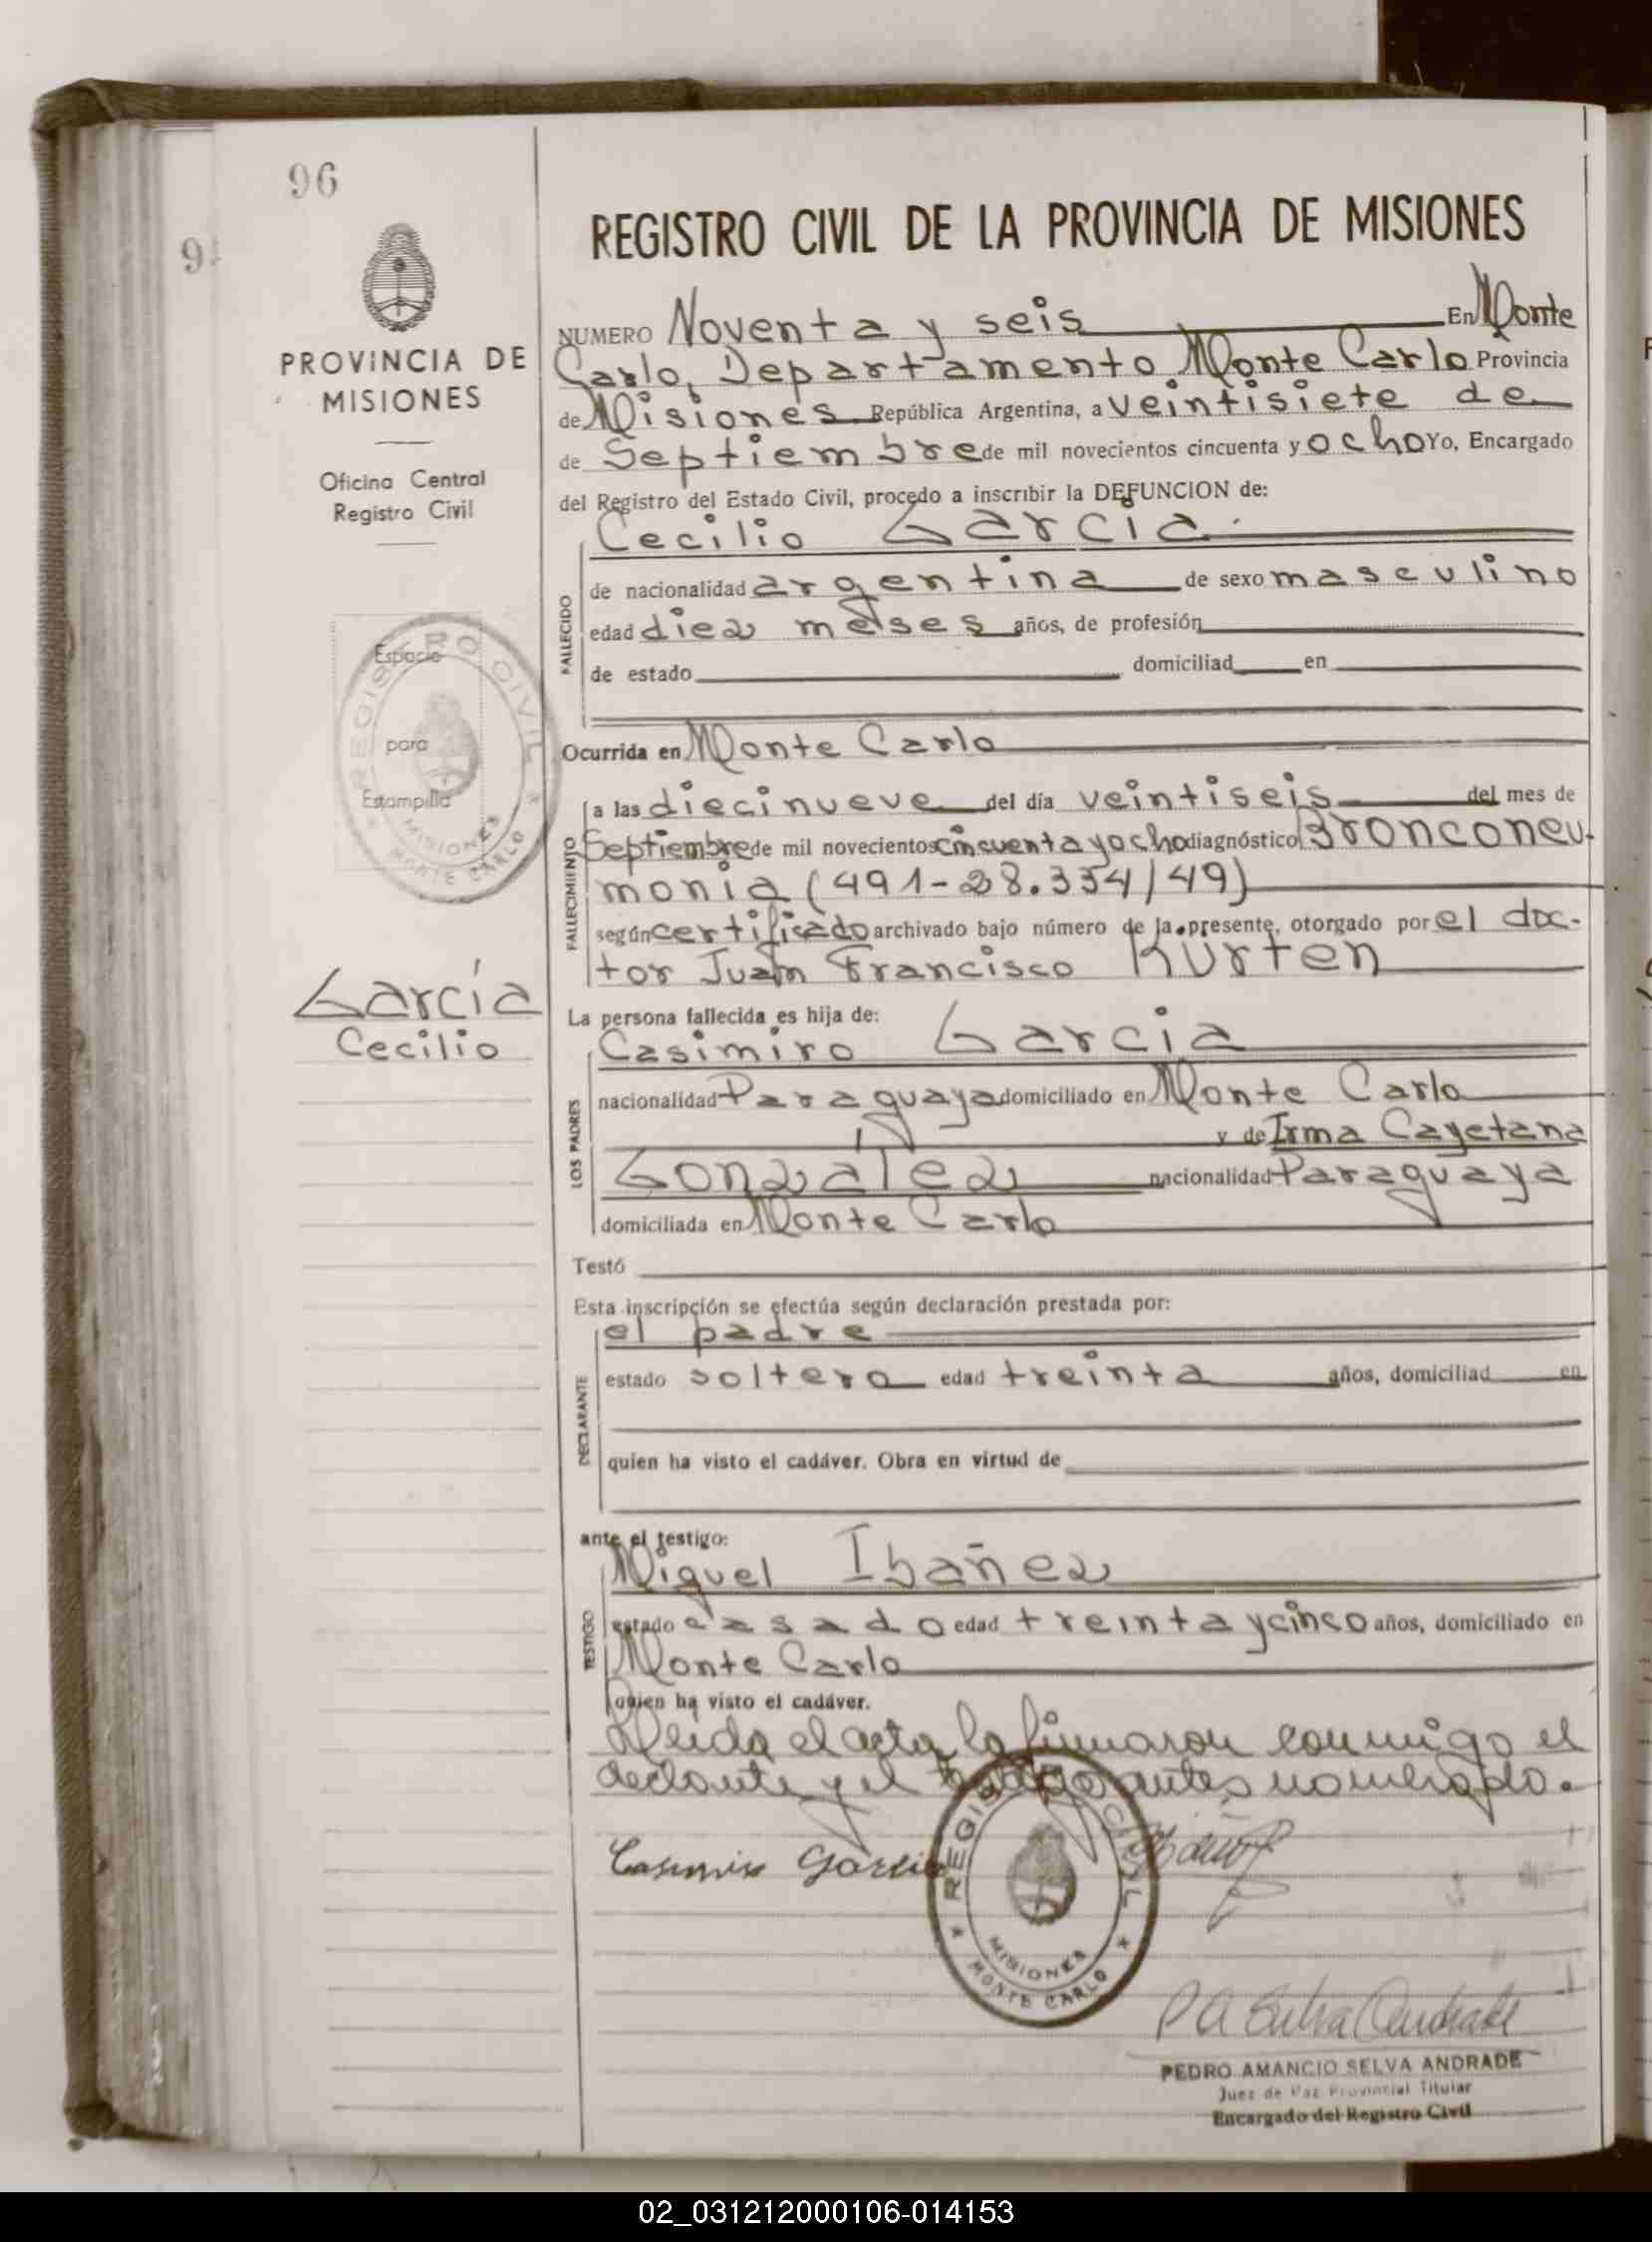 96
9
PROVINCIA DE
MISIONES
Oficina Central
Registro Civil
Espacio
para
Estampilla
REGISTRO CIVIL
MISIONES
MONTE CARLO
García
Cecilio
REGISTRO CIVIL DE LA PROVINCIA DE MISIONES
NUMERO Noventa y seis En Monte
Carlo, Departamento Monte Carlo Provincia
de Misiones República Argentina, a veintisiete de
de Septiembre de mil novecientos cincuenta y ocho Yo, Encargado
del Registro del Estado Civil, procedo a inscribir la DEFUNCION de:
Cecilio García
FALLECIDO
de nacionalidad argentina de sexo masculino
edad diez meses años, de profesión
de estado domiciliad en
Ocurrida en Monte Carlo
FALLECIMIENTO
a las diecinueve del día veintiseis del mes de
Septiembre de mil novecientos cincuenta y ocho diagnóstico Bronconeu-
monia (491-28.354/49)
según certificado archivado bajo número de la presente, otorgado por el doc-
tor Juan Francisco Kurten
La persona fallecida es hija de:
LOS PADRES
Casimiro Garcia
nacionalidad Paraguaya domiciliado en Monte Carlo
y de Irma Cayetana
González nacionalidad Paraguaya
domiciliada en Monte Carlo
Testó
Esta inscripción se efectúa según declaración prestada por:
DECLARANTE
el padre
estado soltero edad treinta años, domiciliad en
quien ha visto el cadáver. Obra en virtud de
ante el testigo:
TESTIGO
Miguel Ibañez
estado casado edad treinta y cinco años, domiciliado en
Monte Carlo
quien ha visto el cadáver.
Leida el acta la firmaron conmigo el
declante y el testigo antes nombrado.
Casimiro Garcia
REGISTRO CIVIL
MISIONES
MONTE CARLO
P A Selva Andrade
PEDRO AMANCIO SELVA ANDRADE
Juez de Paz Provincial Titular
Encargado del Registro Civil
02_031212000106-014153